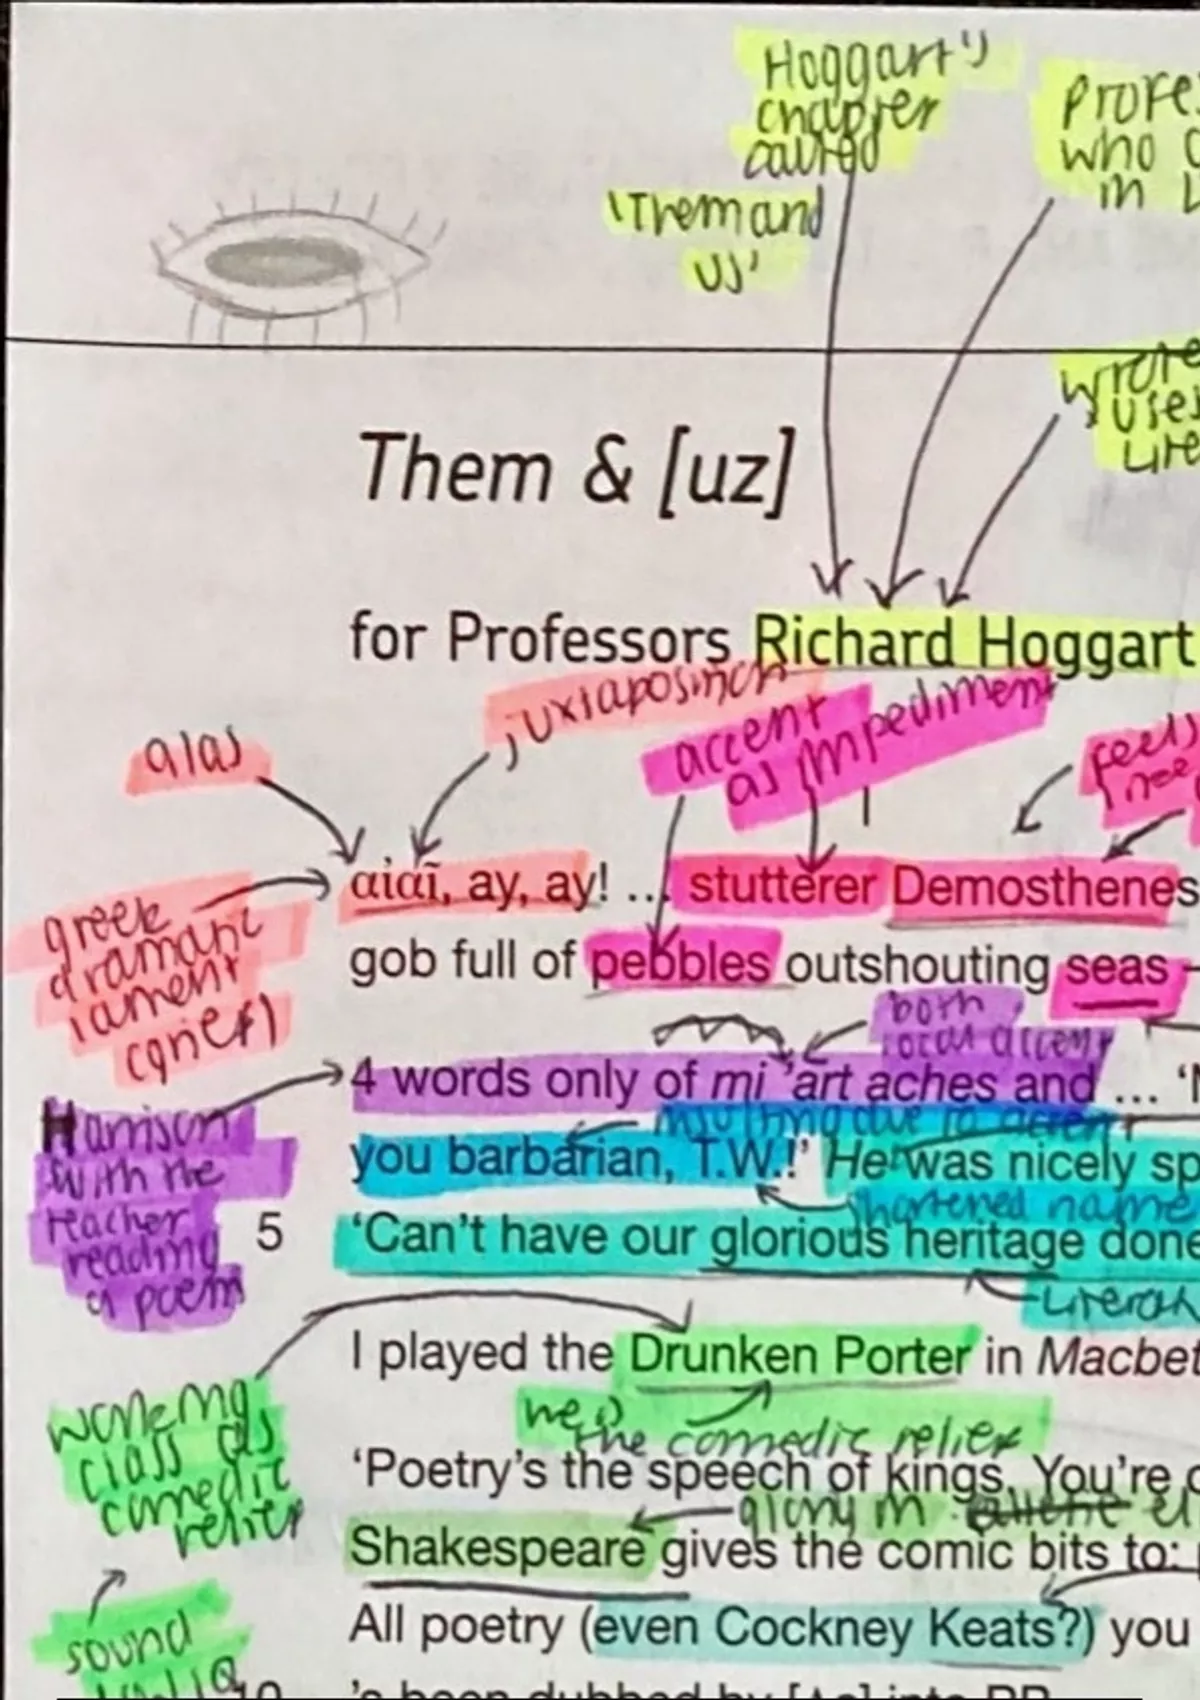 Hoggart's
chapter
called
'Them and
us'
Profe
who
in L
wrote
uses
Lite
Them & [uz]
for Professors Richard Hoggart
juxtaposition
accent
as impediment
alas
feels
αἰαῖ, ay, ay! ... stutterer Demosthenes
greek
dramatic
lament
(grief)
gob full of pebbles outshouting seas –
both
local accent
4 words only of mi 'art aches and ... 'N
Harrison
with the
teacher
reading
a poem
insulting due to accent
you barbarian, T.W.!' He was nicely sp
shortened name
5 'Can't have our glorious heritage done
Literary
I played the Drunken Porter in Macbet
he is
the comedic relief
working
class as
comedic
relief
'Poetry's the speech of kings. You're o
glory in
Shakespeare gives the comic bits to: p
All poetry (even Cockney Keats?) you
sound
10 's been dubbed by [ʌs] into RP